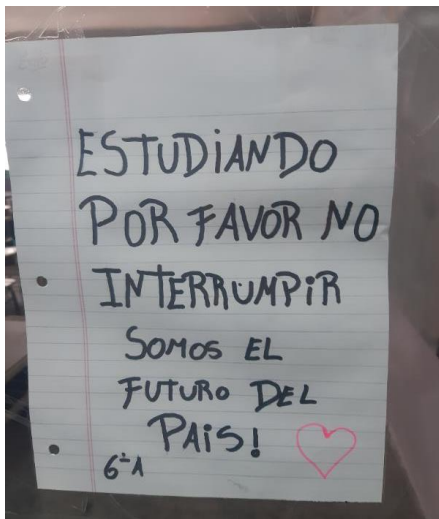 ESTUDIANDO
POR FAVOR NO
INTERRUMPIR
SOMOS EL
FUTURO DEL
PAIS!
6º A